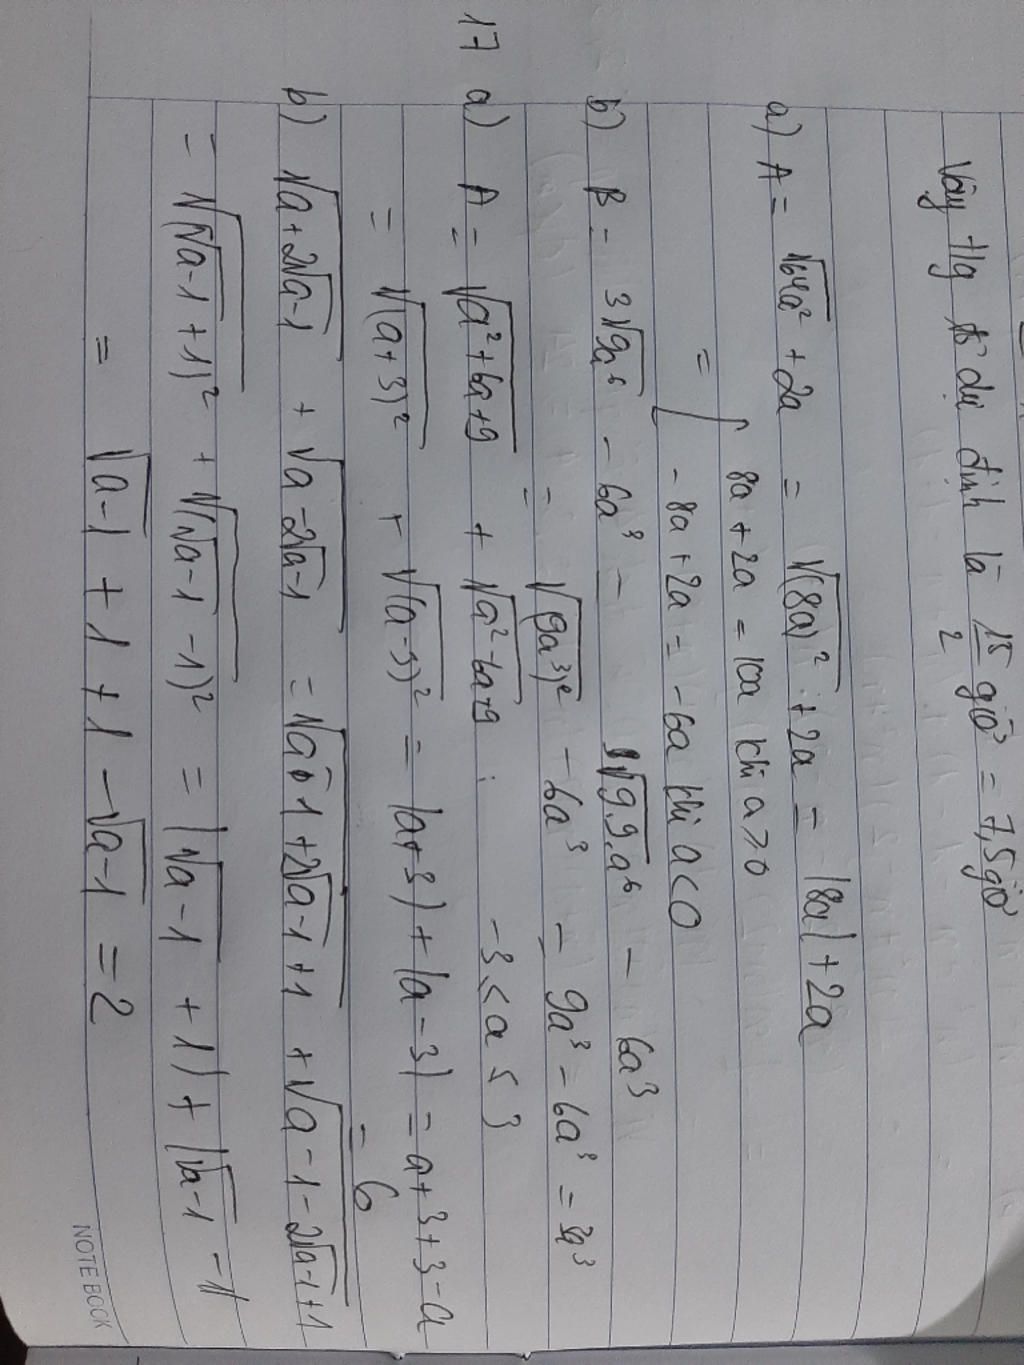 Vậy tg dự định là 15/2 giờ = 7,5 giờ
a) A = √64a² + 2a = √(8a)² + 2a = |8a| + 2a
= { 8a + 2a = 10a khi a ≥ 0
- 8a + 2a = -6a khi a < 0
b) B = 3√9a⁶ - 6a³ = √9.9.a⁶ - 6a³
= √(9a³)² - 6a³ = 9a³ - 6a³ = 3a³
17 a) A = √a²+6a+9 + √a²-6a+9 : -3 ≤ a ≤ 3
= √(a+3)² + √(a-3)² = |a+3| + |a-3| = a+3+3-a
= 6
b) √a+2√a-1 + √a-2√a-1 = √a-1+2√a-1+1 + √a-1-2√a-1+1
= √(√a-1+1)² + √(√a-1-1)² = |√a-1 + 1| + |√a-1 - 1|
= √a-1 + 1 + 1 - √a-1 = 2
NOTE BOOK